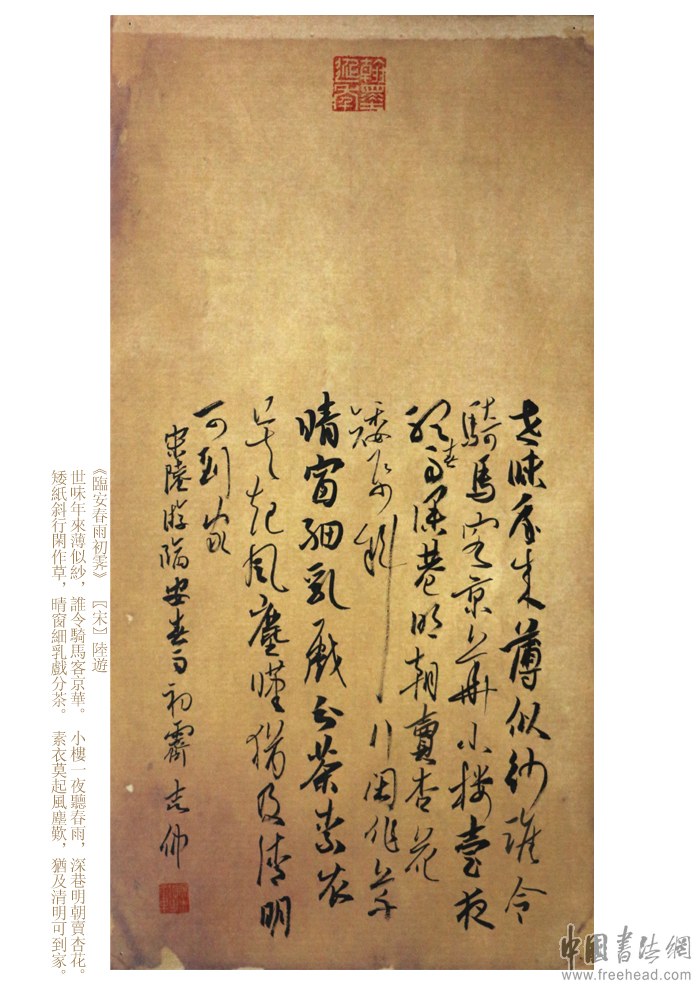 翰墨延年
世味年來薄似紗誰令
騎馬客京華小楼壹夜
聽春雨深巷明朝賣杏花
矮紙斜行閑作草
晴窗細乳戲分茶素衣
莫起風塵嘆猶及清明
可到家
宋陸游臨安春雨初霽
《臨安春雨初霁》 【宋】陸遊
世味年來薄似紗，誰令騎馬客京華。 小樓一夜聽春雨，深巷明朝賣杏花。
矮紙斜行閑作草，晴窗細乳戲分茶。 素衣莫起風塵歎，猶及清明可到家。
中國書法網
www.freehead.com